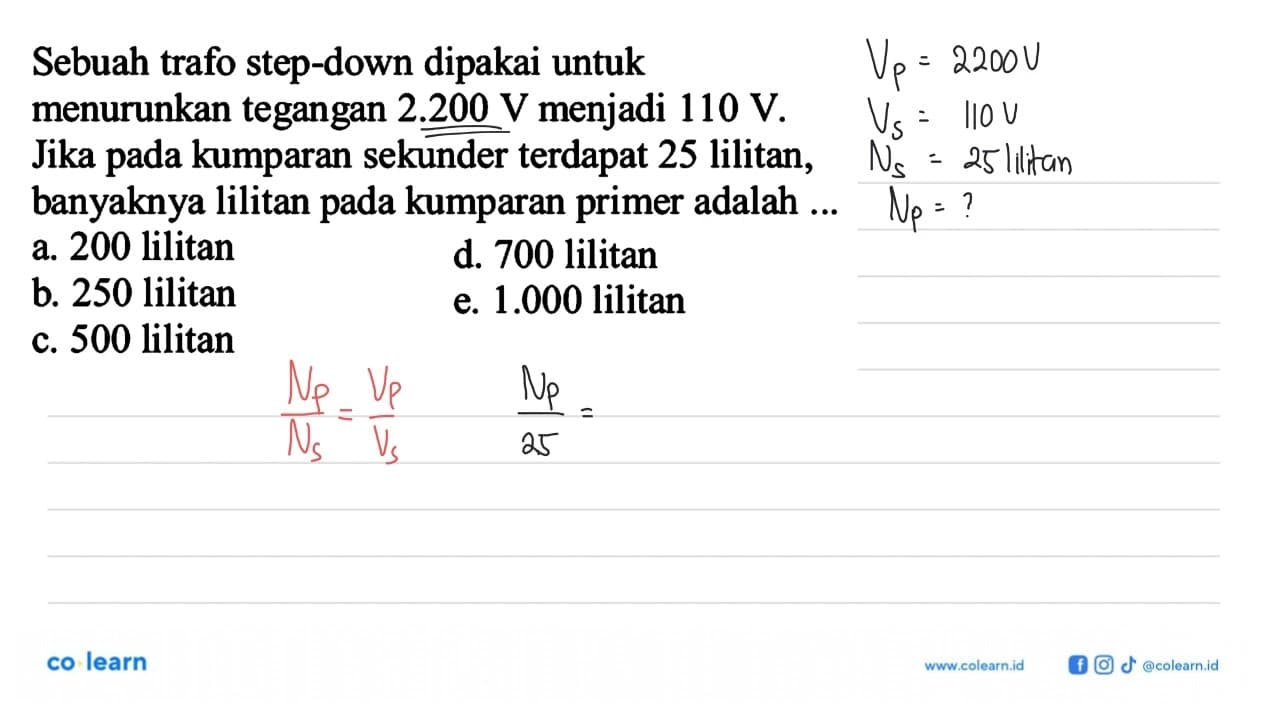 Sebuah trafo step-down dipakai untuk
menurunkan tegangan 2.200 V menjadi 110 V.
Jika pada kumparan sekunder terdapat 25 lilitan,
banyaknya lilitan pada kumparan primer adalah ...
a. 200 lilitan
b. 250 lilitan
c. 500 lilitan
d. 700 lilitan
e. 1.000 lilitan
Vp = 2200 V
Vs = 110 V
Ns = 25 lilitan
Np = ?
Np/Ns = Vp/Vs
Np/25 =
co learn
www.colearn.id
@colearn.id